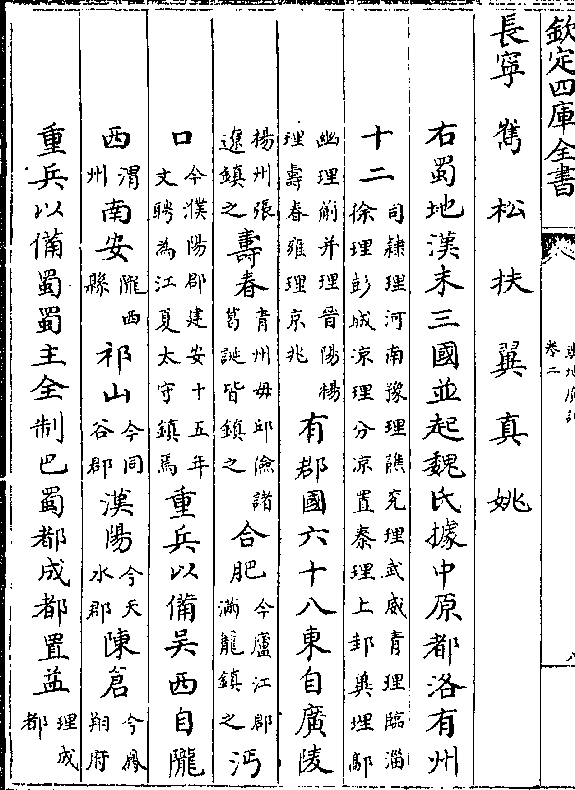 欽定四庫全書
卷二
長寧嶲松扶翼真姚
右蜀地漢末三國並起魏氏據中原都洛有州
十二司隸理河南豫理譙兖理武威青理臨淄徐理彭城涼理分涼置秦理上邽兾理鄴
幽理薊并理晉陽楊理壽春雍理京兆有郡國六十八東自廣陵
楊州張遼鎮之壽春青州毋邱儉諸葛誕皆鎮之合肥今廬江郡滿龍鎮之沔
口今濮陽郡建安十五年文聘為江夏太守鎮焉重兵以備吳西自隴
西渭州南安隴西縣祁山今同谷郡漢陽今天水郡陳倉今鳯翔府
重兵以備蜀蜀主全制巴蜀都成都置益理成都